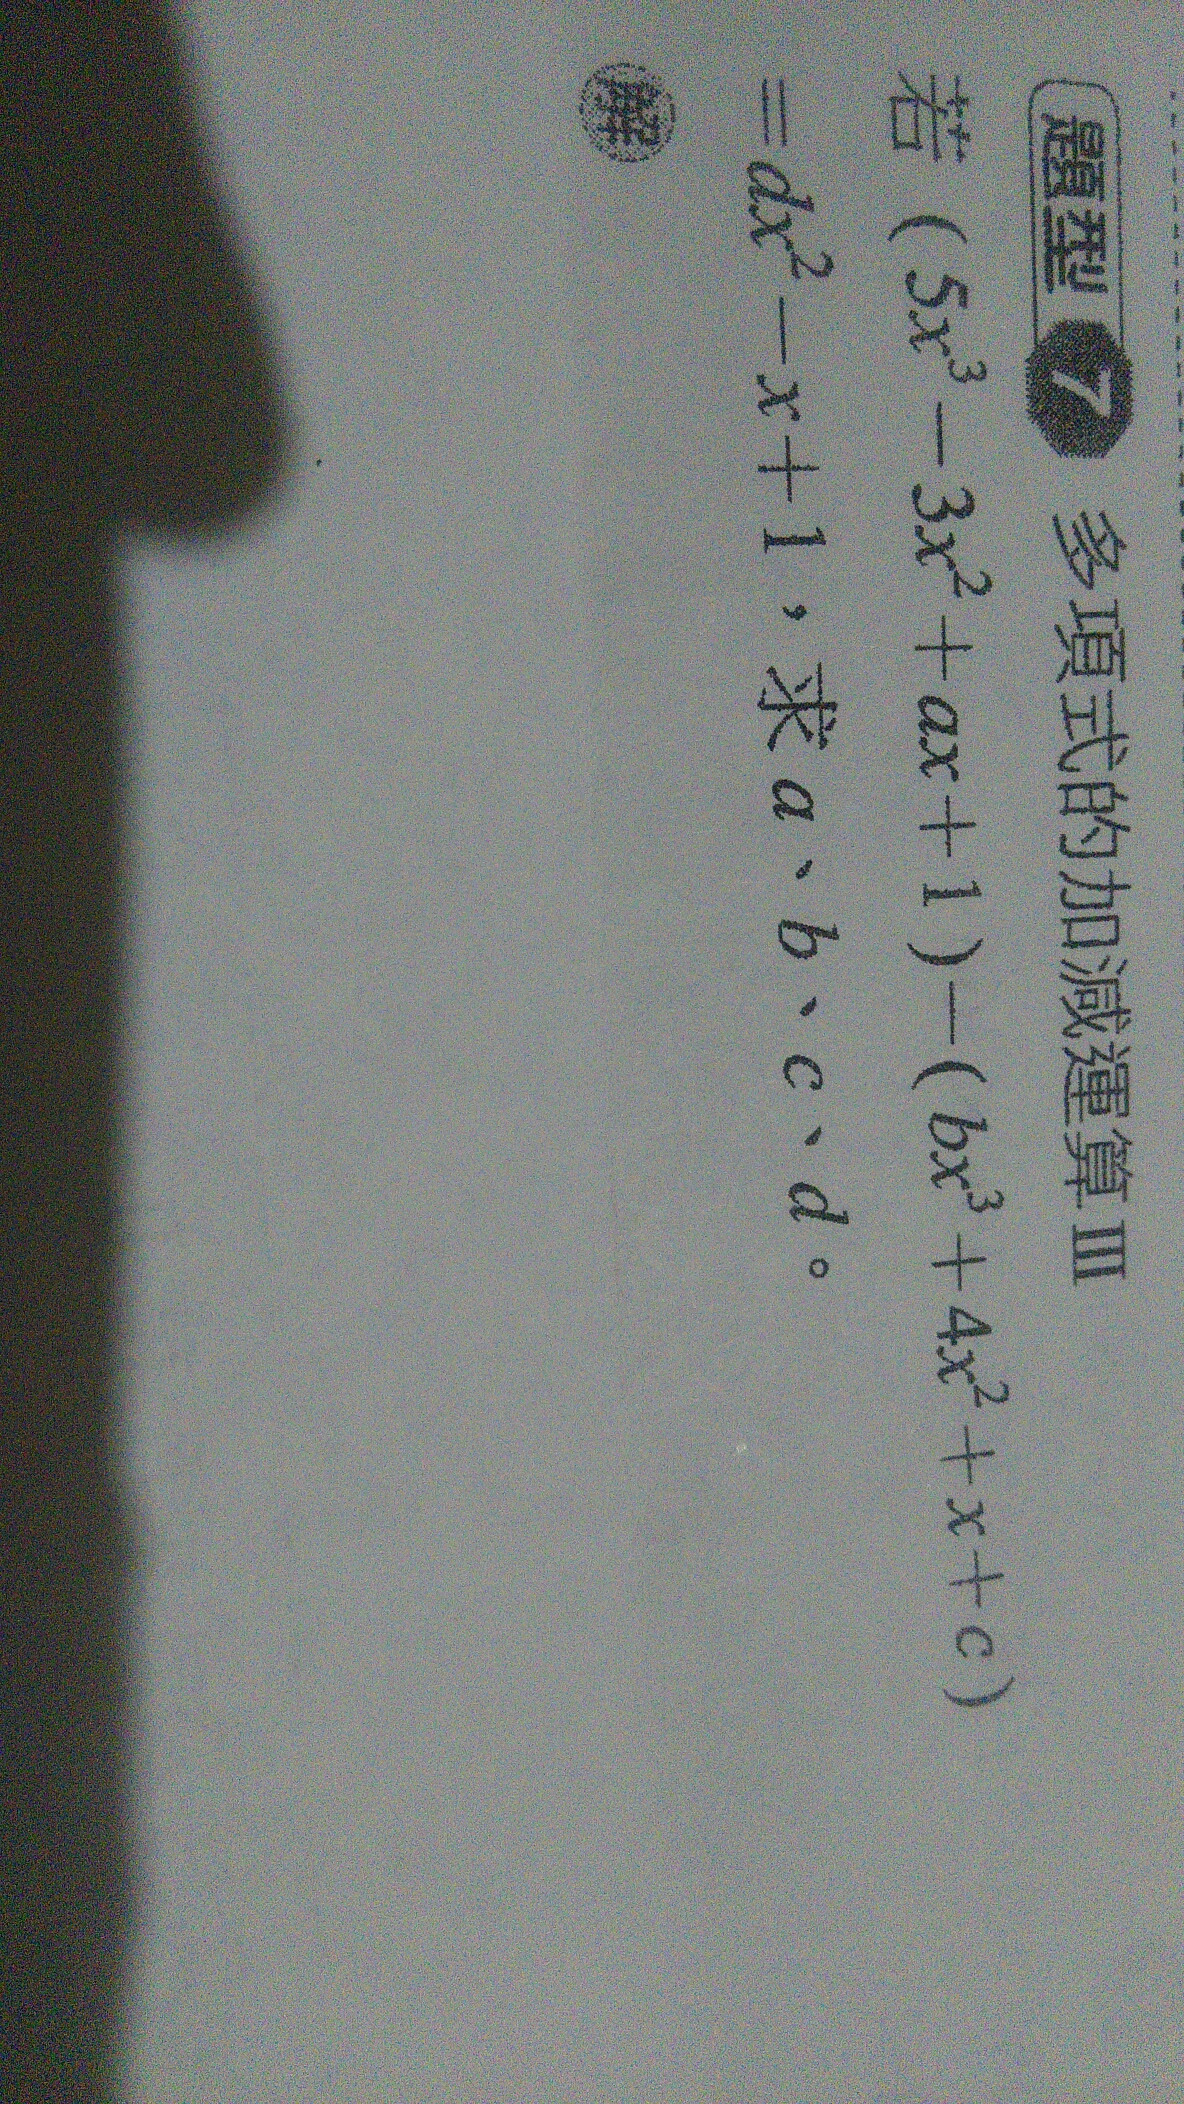 題型 7 多項式的加減運算 III
若（5x³－3x²＋ax＋1）－（bx³＋4x²＋x＋c）
＝dx²－x＋1，求 a、b、c、d。
解